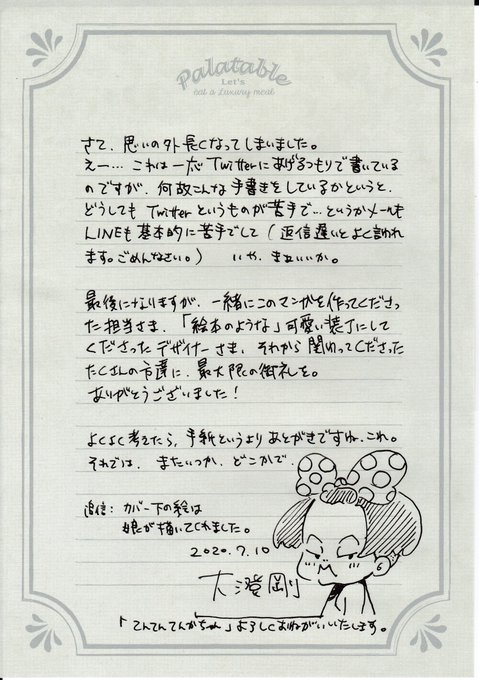 Palatable
Let's
eat a Luxury meal
さて、思いの外長くなってしまいました。
えー… これは一応Twitterにあげるつもりで書いている
のですが、何故こんな手書きをしているかというと、
どうしてもTwitterというものが苦手で…というかメールも
LINEも基本的に苦手でして(返信遅いとよく言われ
ます。ごめんなさい。) いや、まぁいいか。
最後になりますが、一緒にこのマンガを作ってくださっ
た担当さま、「絵本のような」可愛い装丁にして
くださったデザイナーさま、それから関わってくださった
たくさんの方達に、最大限の御礼を。
ありがとうございました！
よくよく考えたら、手紙というよりあとがきですね、これ。
それでは、またいつか、どこかで、
追信: カバー下の絵は
娘が描いてくれました。
2020.7.10
大澄剛
「てんてんてんかちゃん」よろしくおねがいいたします。